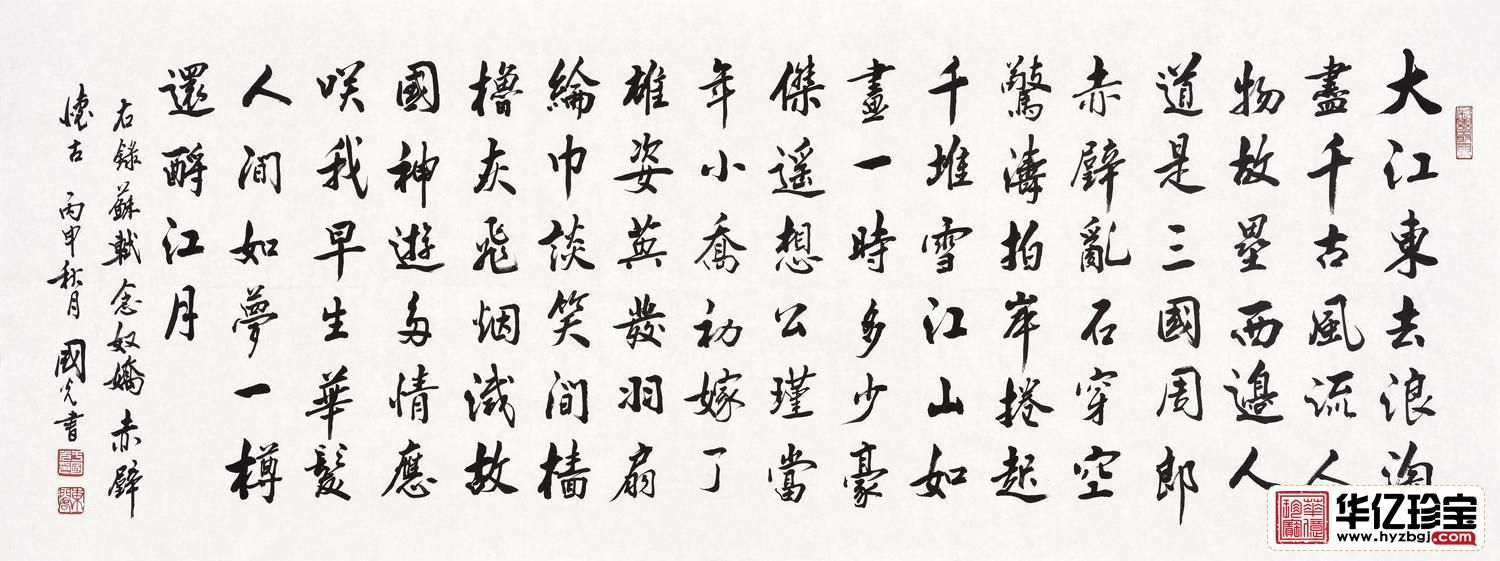 大江東去浪淘
盡千古風流人
物故壘西邊人
道是三國周郎
赤壁亂石穿空
驚濤拍岸捲起
千堆雪江山如
畫一時多少豪
傑遥想公瑾當
年小喬初嫁了
雄姿英發羽扇
綸巾談笑間檣
櫓灰飛烟滅故
國神遊多情應
咲我早生華髮
人間如夢一樽
還酹江月
右錄蘇軾念奴嬌赤壁
懷古 丙申秋月 國光書
华亿珍宝
www.hyzbgj.com